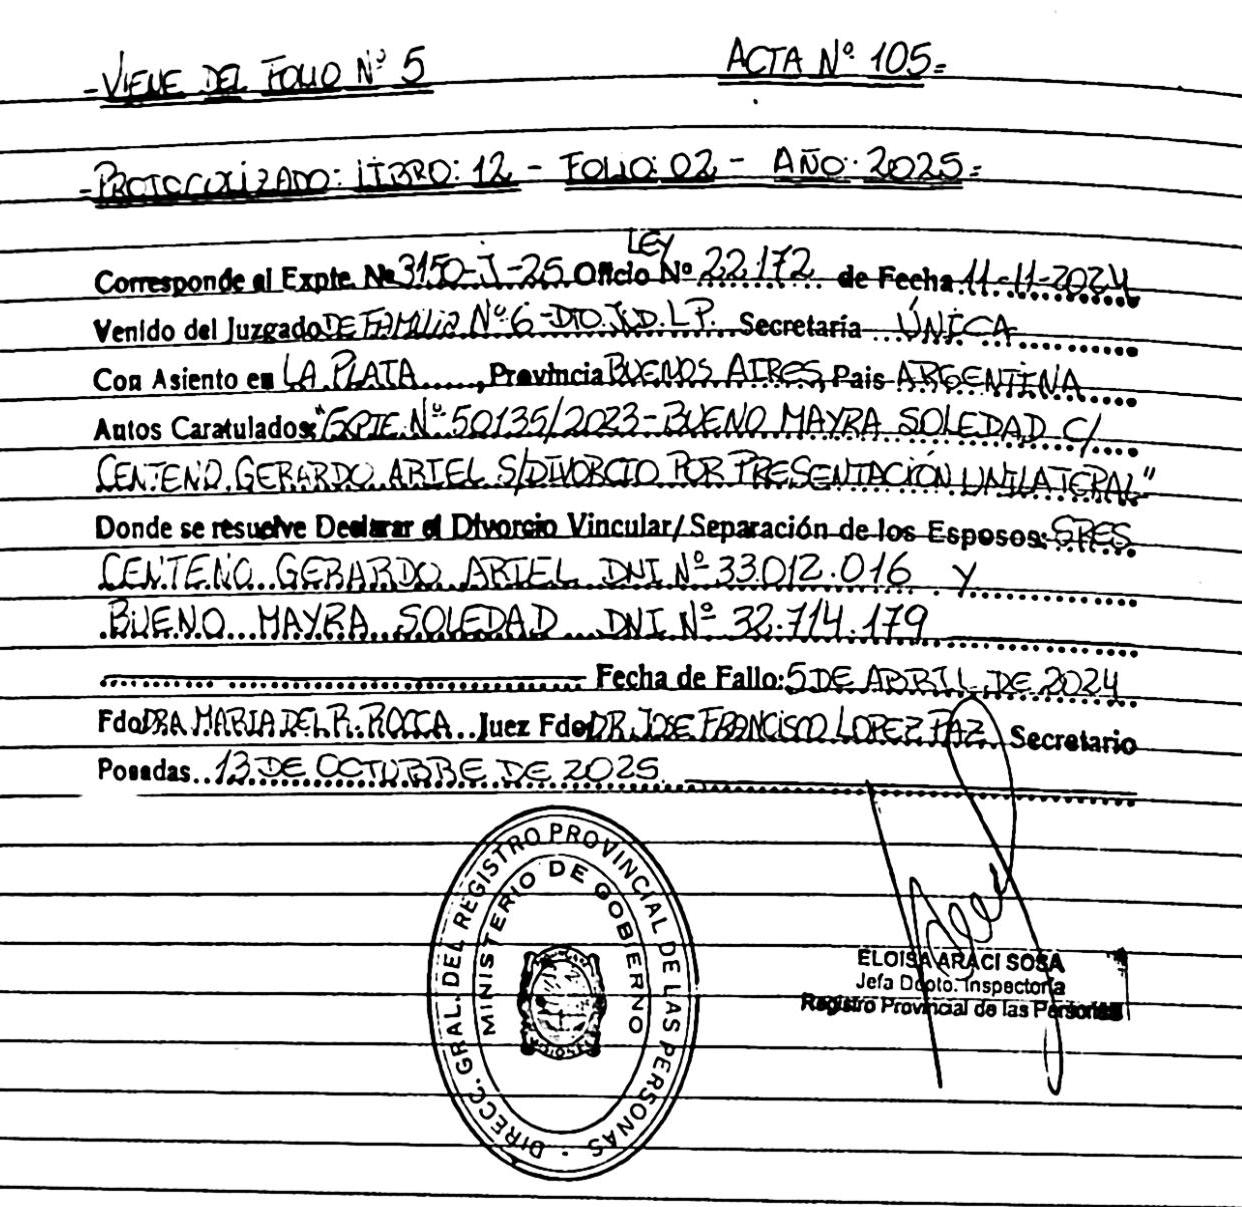 -VIENE DEL FOLIO Nº 5
ACTA Nº 105=
-PROTOCOLIZADO: LIBRO: 12 - FOLIO: 02 - AÑO: 2025=
LEY
Corresponde el Expte. Nº 3150-J-25 Oficio Nº 22.172 de Fecha 11-11-2024
Venido del Juzgado DE FAMILIA Nº 6 - DTO. J.D. L.P. Secretaría ÚNICA
Con Asiento en LA PLATA, Provincia BUENOS AIRES, Pais ARGENTINA
Autos Caratulados: "EXPTE. Nº 50135/2023 - BUENO MAYRA SOLEDAD C/
CENTENO GERARDO ARIEL S/DIVORCIO POR PRESENTACIÓN UNILATERAL"
Donde se resuelve Declarar el Divorcio Vincular/Separación de los Esposos: SRES
CENTENO GERARDO ARIEL DNI Nº 33.012.016 Y
BUENO MAYRA SOLEDAD DNI Nº 32.714.179
Fecha de Fallo: 5 DE ABRIL DE 2024
Fdo DRA. MARIA DEL R. ROCCA Juez Fdo DR. JOSE FRANCISCO LOPEZ PAZ Secretario
Posadas 13 DE OCTUBRE DE 2025
DIRECC. GRAL. DEL REGISTRO PROVINCIAL DE LAS PERSONAS
MINISTERIO DE GOBIERNO
ELOISA ARACI SOSA
Jefa Dpto. Inspectoría
Registro Provincial de las Personas